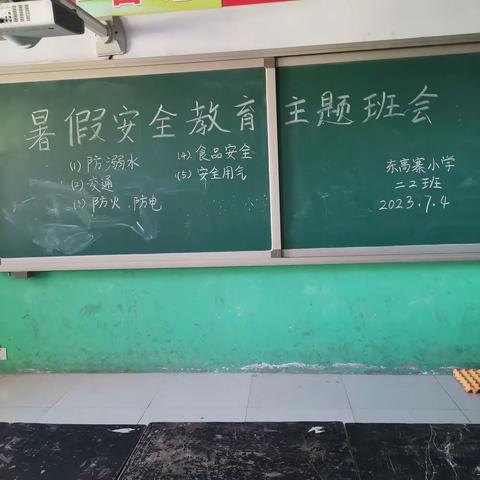 暑假安全教育主题班会
(1) 防溺水
(2) 交通
(3) 防火、防电
(4). 食品安全
(5) 安全用气
东高寨小学
二2班
2023.7.4